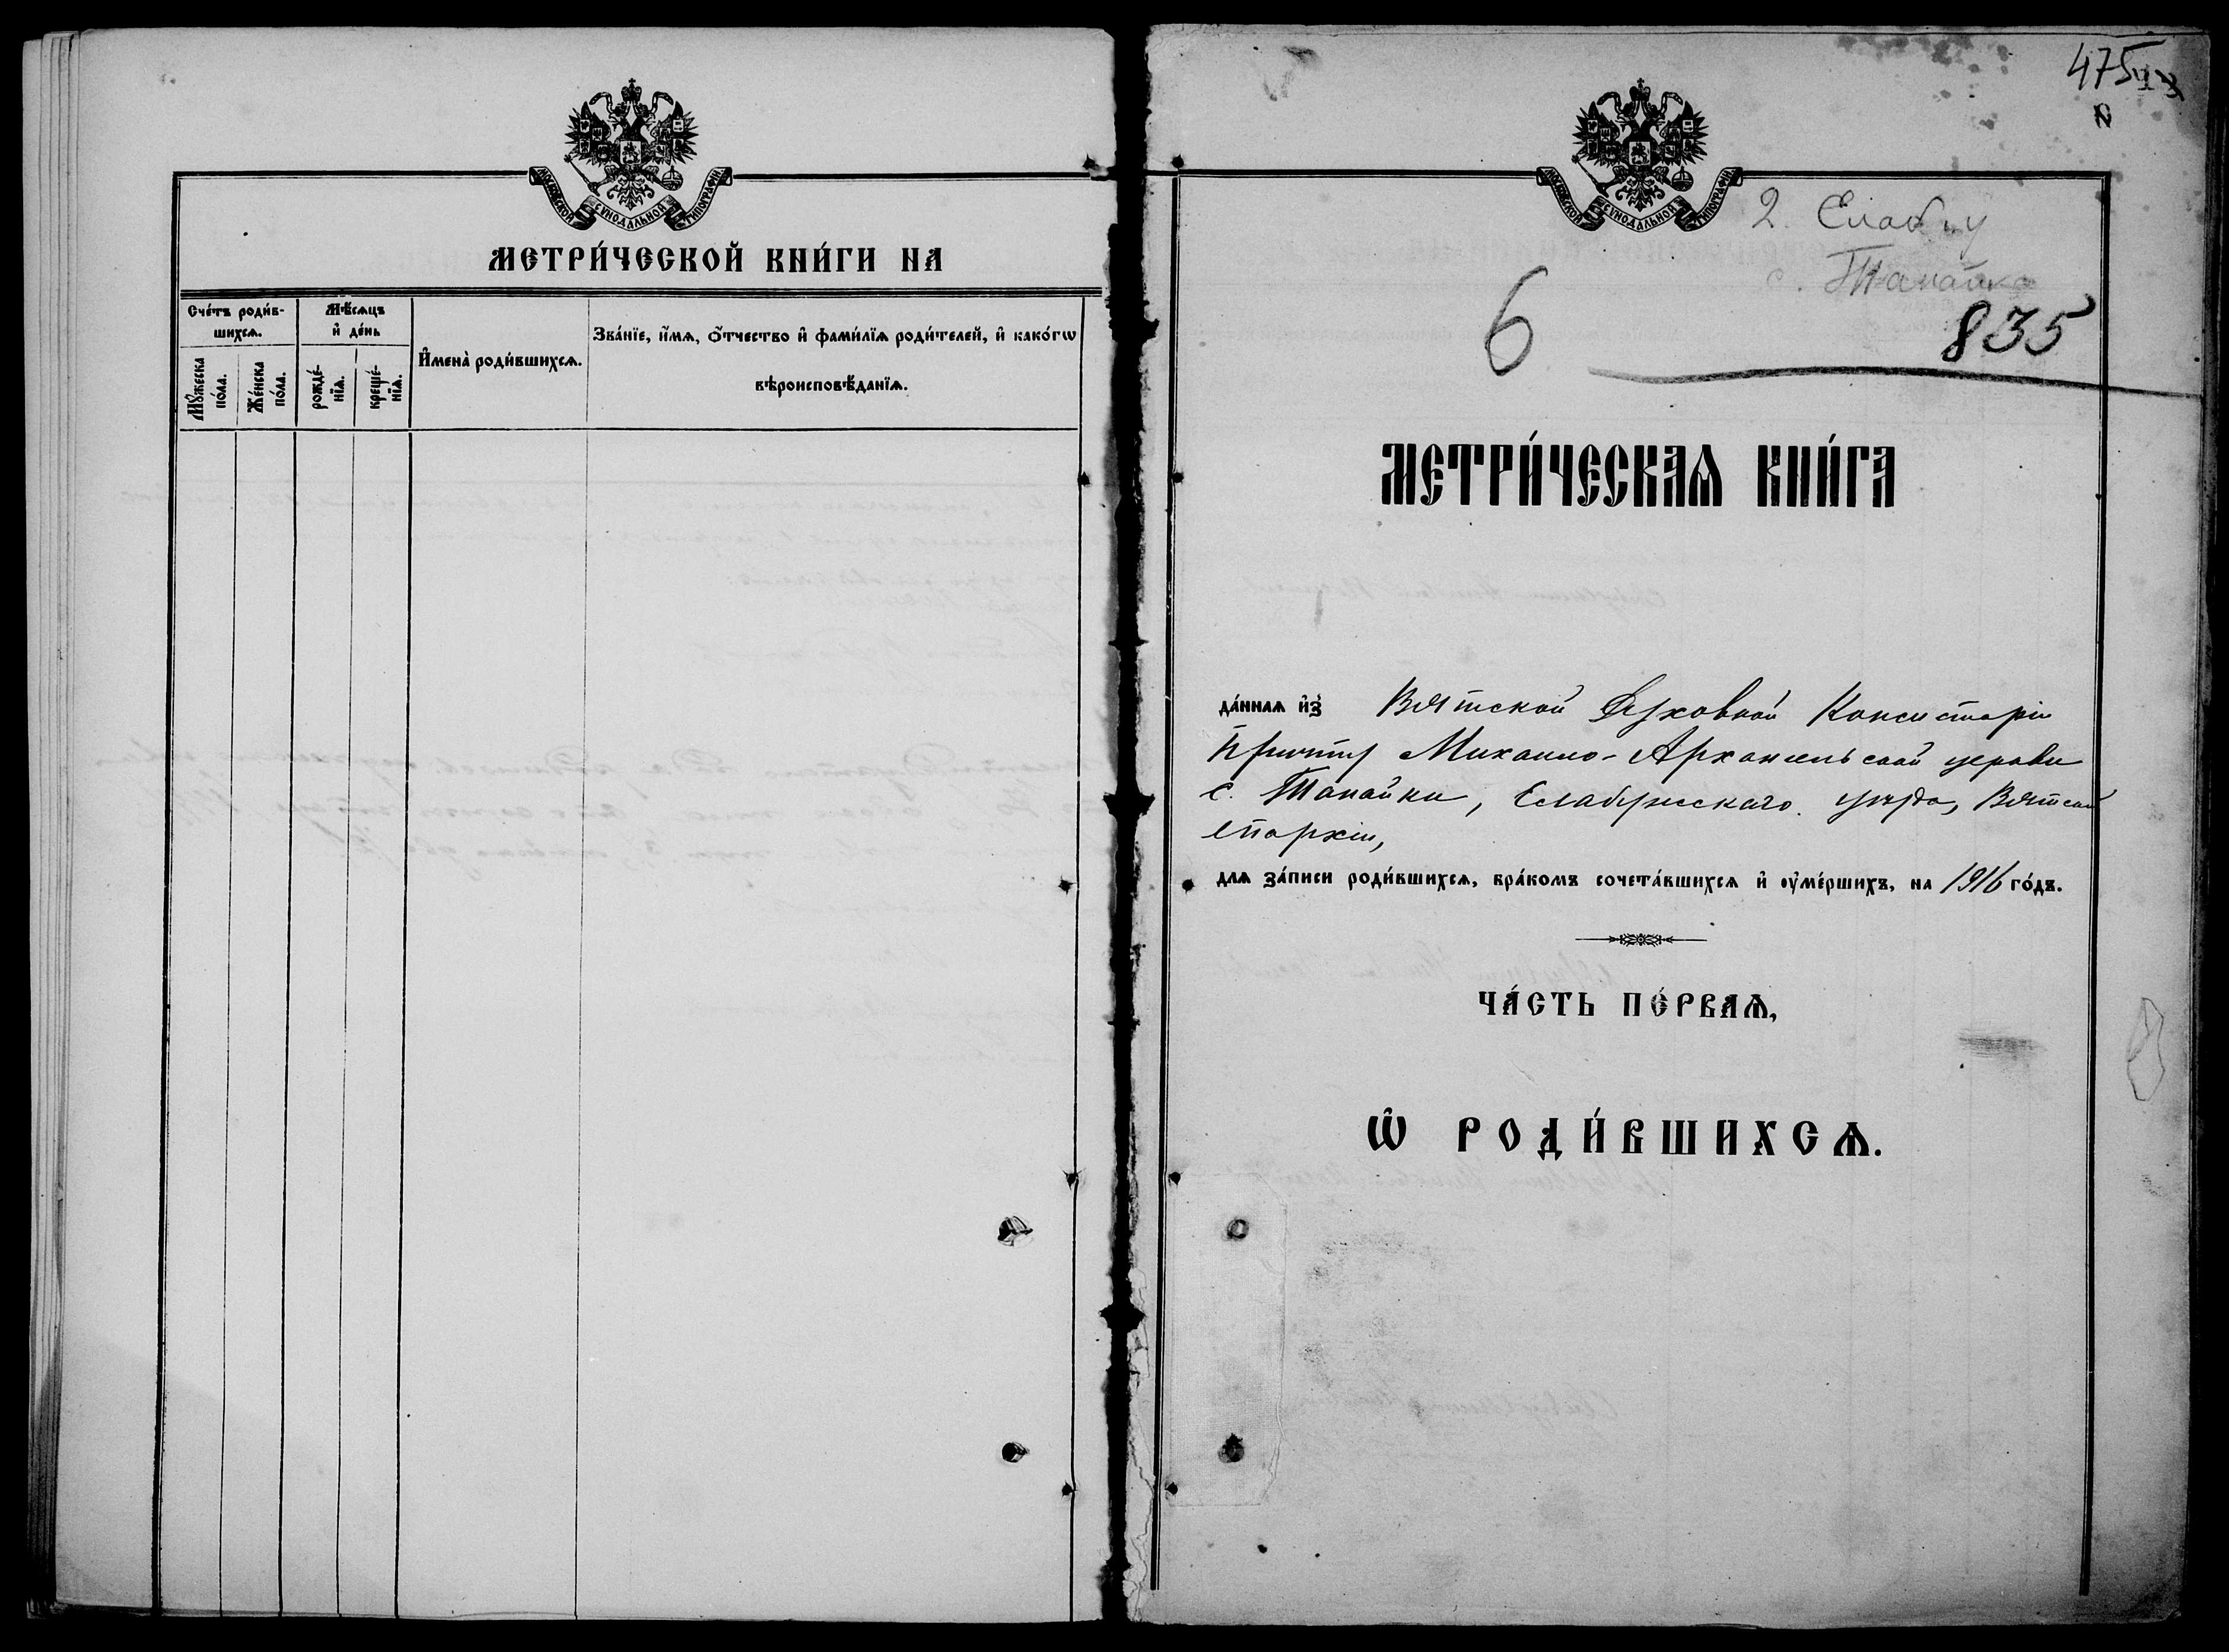 МОСКОВСКОЙ СѴНОДАЛЬНОЙ ТИПОГРАФІИ
МЕТРИ́ЧЕСКОЙ КНИ́ГИ НА
Сче́тъ роди́в-
шихсѧ.
Мѣ́сѧцъ
и҆ де́нь
И҆мена̀ роди́вшихсѧ.
Зва́нїе, и҆́мѧ, ѻ҆́тчество и҆ фамилїѧ роди́телей, и҆ како́гѡ
вѣроисповѣ́данїѧ.
Мꙋ́жеска
по́ла.
Же́нска
по́ла.
рожде́-
нїѧ.
креще́-
нїѧ.
475
МОСКОВСКОЙ СѴНОДАЛЬНОЙ ТИПОГРАФІИ
2. Елабуу
с. Танайка
6
835
МЕТРИ́ЧЕСКАѦ КНИ́ГА
да́ннаѧ и҆з̾ Вятской Духовной Консисторіи
Причту Михаило-Архангельской церкви
с. Танайки, Елабужскаго уѣзда, Вятской
епархіи,
длѧ за́писи роди́вшихсѧ, бра́комъ сочета́вшихсѧ и҆ ᲂу҆ме́ршихъ, на 1916 го́дъ.
ЧА́СТЬ ПЕ́РВАѦ,
Ѡ҆ РОДИ́ВШИХСѦ.